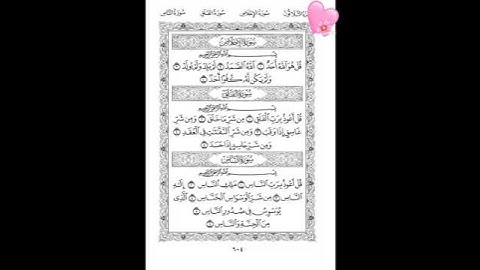 سُورَةُ الإِخْلَاصِ سُورَةُ الفَلَقِ سُورَةُ النَّاسِ
سُورَةُ الإِخْلَاصِ
بِسْمِ اللَّهِ الرَّحْمَٰنِ الرَّحِيمِ
قُلْ هُوَ اللَّهُ أَحَدٌ ١ اللَّهُ الصَّمَدُ ٢ لَمْ يَلِدْ وَلَمْ يُولَدْ ٣
وَلَمْ يَكُن لَّهُ كُفُوًا أَحَدٌ ٤
سُورَةُ الفَلَقِ
بِسْمِ اللَّهِ الرَّحْمَٰنِ الرَّحِيمِ
قُلْ أَعُوذُ بِرَبِّ الْفَلَقِ ١ مِن شَرِّ مَا خَلَقَ ٢ وَمِن شَرِّ
غَاسِقٍ إِذَا وَقَبَ ٣ وَمِن شَرِّ النَّفَّٰثَٰتِ فِي الْعُقَدِ ٤
وَمِن شَرِّ حَاسِدٍ إِذَا حَسَدَ ٥
سُورَةُ النَّاسِ
بِسْمِ اللَّهِ الرَّحْمَٰنِ الرَّحِيمِ
قُلْ أَعُوذُ بِرَبِّ النَّاسِ ١ مَلِكِ النَّاسِ ٢ إِلَٰهِ
النَّاسِ ٣ مِن شَرِّ الْوَسْوَاسِ الْخَنَّاسِ ٤ الَّذِي
يُوَسْوِسُ فِي صُدُورِ النَّاسِ ٥
مِنَ الْجِنَّةِ وَالنَّاسِ ٦
٦٠٤